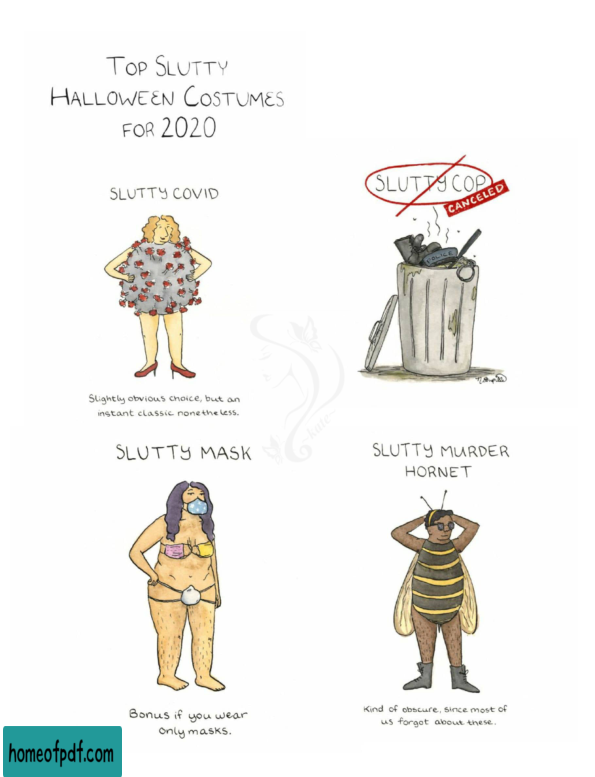 TOP SLUTTY
HALLOWEEN COSTUMES
FOR 2020
SLUTTY COVID
Slightly obvious choice, but an
instant classic nonetheless.
SLUTTY COP
CANCELED
POLICE
SLUTTY MASK
Bonus if you wear
only masks.
SLUTTY MURDER
HORNET
Kind of obscure, since most of
us forgot about these.
hair
homeofpdf.com